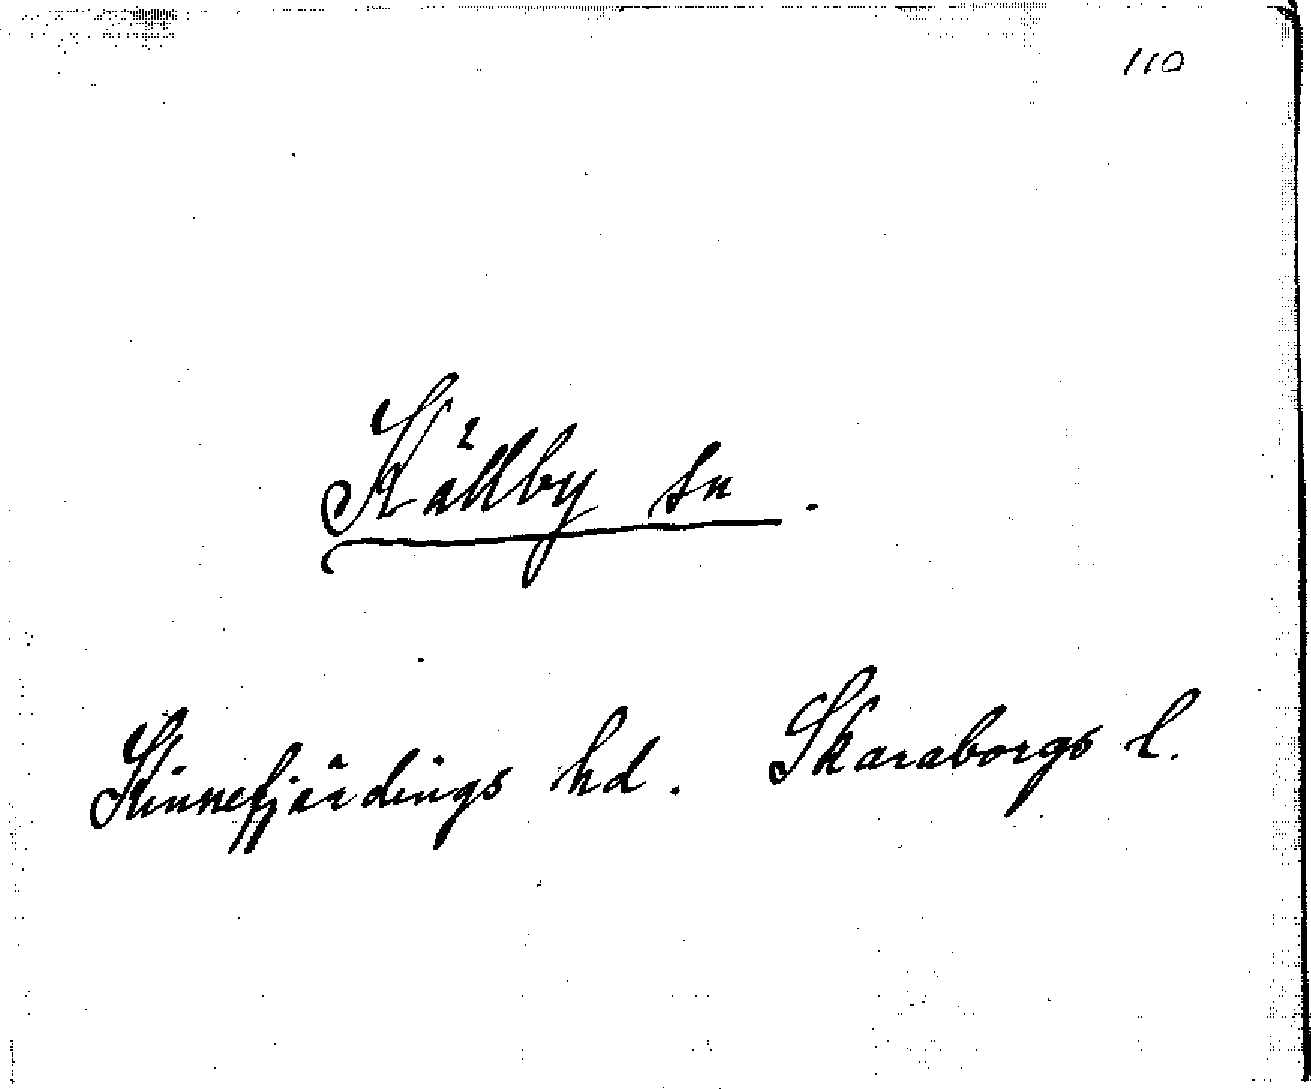 110
Källby sn.
Kinnefjärdings hd. Skaraborgs l.